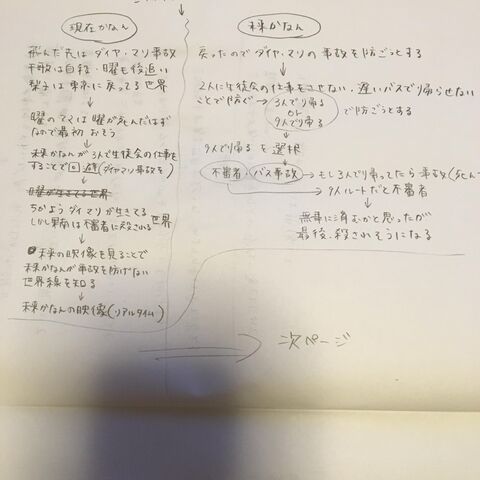 現在かなん
飛んだ先はダイヤ・マリ事故
千歌は自殺・曜も後追い
梨子は東京に戻ってる世界
曜のママは曜が死んだはず
なので最初おそう
未来かなんが3人で生徒会の仕事を
することで回避(ダイヤマリ事故を)
曜が生きてる世界
ちかようダイマリが生きてる世界
しかし果南は不審者に殺される
未来の映像を見ることで
未来かなんが事故を防げない
世界線を知る
未来かなんの映像(リアルタイム)
未来かなん
戻ったのでダイヤ・マリの事故を防ごうとする
2人に生徒会の仕事をさせない、遅いバスで帰らせない
ことで防ぐ→3人で帰る
or
9人で帰る
で防ごうとする
9人で帰るを選択
不審者・バス事故→もし3人で帰ってたら事故(死
→9人ルートだと不審者
無事に済むかと思ったが
最後、殺されそうになる
次ページ